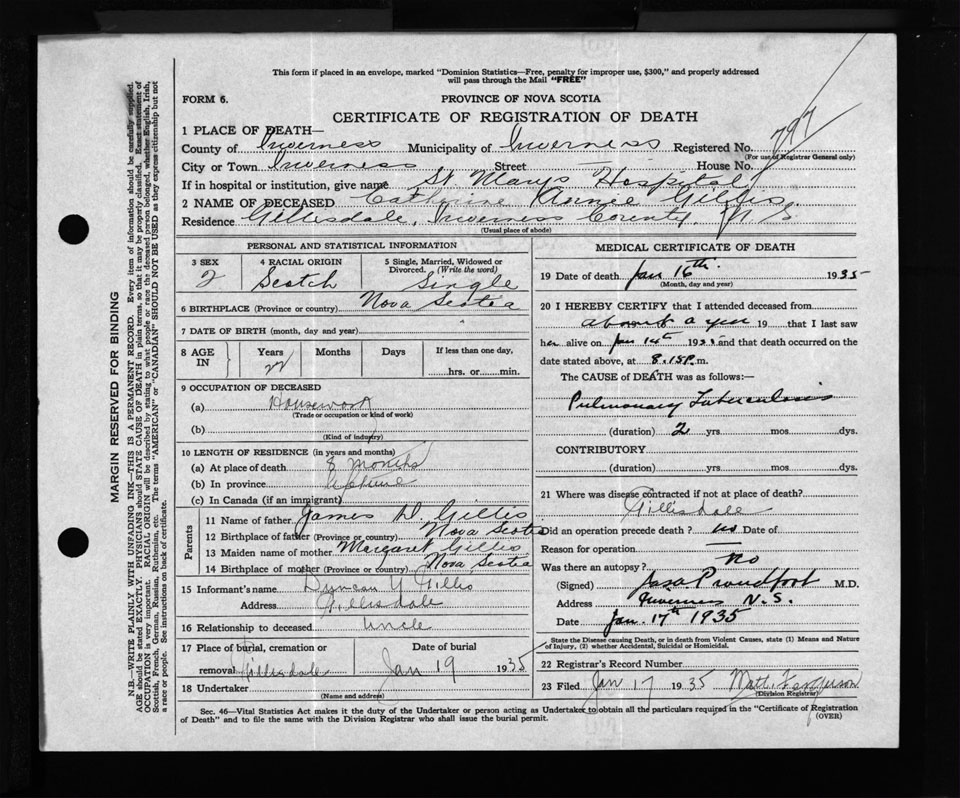 This form if placed in an envelope, marked "Dominion Statistics—Free, penalty for improper use, $300," and properly addressed
will pass through the Mail "FREE"
FORM 6.
PROVINCE OF NOVA SCOTIA
CERTIFICATE OF REGISTRATION OF DEATH
797
1 PLACE OF DEATH—
County of Inverness Municipality of Inverness Registered No.
(For use of Registrar General only)
City or Town Inverness Street — House No.
If in hospital or institution, give name St Marys Hospital
2 NAME OF DECEASED Catherine Annie Gillis
Residence Gillisdale, Inverness County, N S
(Usual place of abode)
PERSONAL AND STATISTICAL INFORMATION
3 SEX 4 RACIAL ORIGIN 5 Single, Married, Widowed or Divorced. (Write the word)
2 Scotch Single
6 BIRTHPLACE (Province or country) Nova Scotia
7 DATE OF BIRTH (month, day and year)
8 AGE IN Years Months Days If less than one day,
22 hrs. or min.
9 OCCUPATION OF DECEASED
(a) Housework
(Trade or occupation or kind of work)
(b)
(Kind of industry)
10 LENGTH OF RESIDENCE (in years and months)
(a) At place of death 8 months
(b) In province lifetime
(c) In Canada (if an immigrant)
Parents
11 Name of father James D. Gillis
12 Birthplace of father (Province or country) Nova Scotia
13 Maiden name of mother Margaret Gillis
14 Birthplace of mother (Province or country) Nova Scotia
15 Informant's name Duncan Gillis
Address Gillisdale
16 Relationship to deceased Uncle
17 Place of burial, cremation or Date of burial
removal Gillisdale Jan 19 1935
18 Undertaker
(Name and address)
MEDICAL CERTIFICATE OF DEATH
19 Date of death Jan 16th 1935
(Month, day and year)
20 I HEREBY CERTIFY that I attended deceased from
about a year 19 that I last saw
her alive on Jan 14th 1935 and that death occurred on the
date stated above, at 8.15P.m.
The CAUSE of DEATH was as follows:—
Pulmonary Tuberculosis
(duration) 2 yrs mos. dys.
CONTRIBUTORY
(duration) yrs. mos. dys.
21 Where was disease contracted if not at place of death?
Gillisdale
Did an operation precede death? no Date of
Reason for operation —
Was there an autopsy? No
(Signed) Proudfoot M.D.
Address Inverness N.S.
Date Jan. 17th 1935
State the Disease causing Death, or in death from Violent Causes, state (1) Means and Nature
of Injury, (2) whether Accidental, Suicidal or Homicidal.
22 Registrar's Record Number
23 Filed Jan 17 1935
(Division Registrar)
Sec. 46—Vital Statistics Act makes it the duty of the Undertaker or person acting as Undertaker to obtain all the particulars required in the "Certificate of Registration
of Death" and to file the same with the Division Registrar who shall issue the burial permit.
(OVER)
MARGIN RESERVED FOR BINDING
N.B.—WRITE PLAINLY WITH UNFADING INK—THIS IS A PERMANENT RECORD. Every item of information should be carefully supplied.
AGE should be stated EXACTLY. PHYSICIANS should STATE CAUSE OF DEATH in plain terms, so that it may be properly classified. Exact statement of
OCCUPATION is very important. RACIAL ORIGIN will be described by stating to what people or race the deceased person belonged, whether English, Irish,
Scottish, French, German, Russian, Ruthenian, etc. The terms "AMERICAN" or "CANADIAN" SHOULD NOT BE USED as they express citizenship but not
a race or people. See instructions on back of certificate.